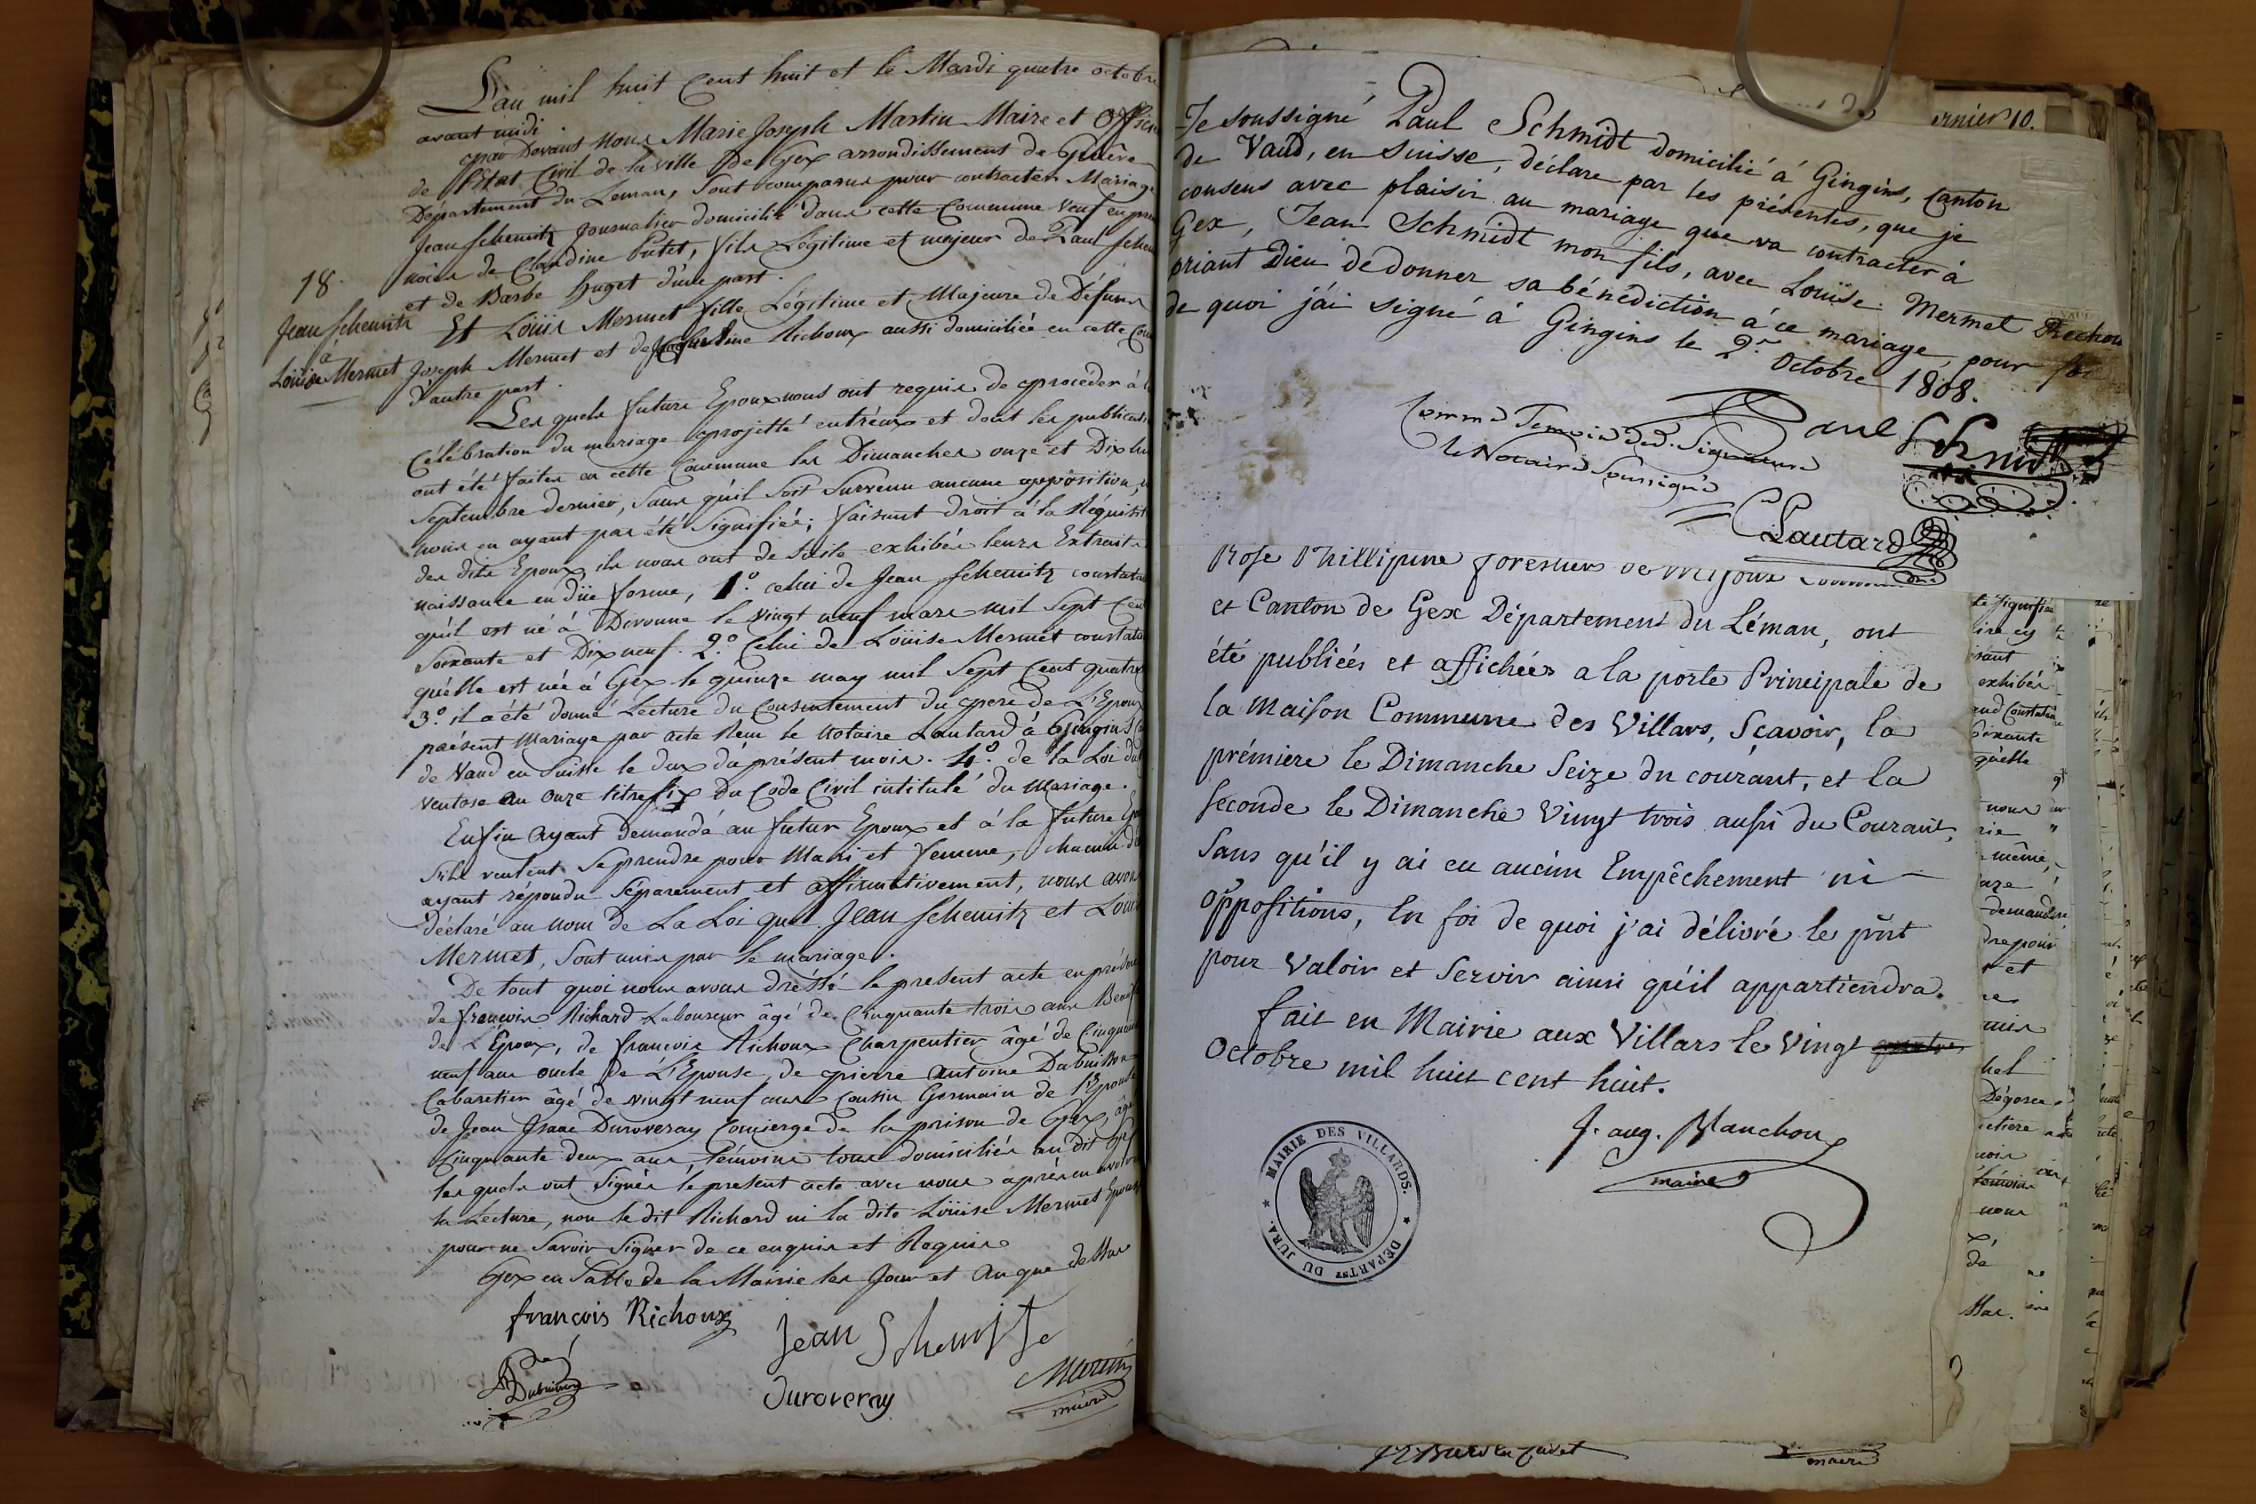 L'an mil huit Cent huit et le Mardi quatre octobre
avant midi
par Devant nous Marie Joseph Martin Maire et Officier
de l'Etat Civil de la ville De Gex arrondissement de Genêve
Département du Leman, sont comparus pour contracter Mariage
Jean Schemitz Journalier domicilié dans cette Commune Veuf en
noces de Claudine Putet, fils Légitime et majeur de Paul
et de Barbe huget d'une part.
18.
Jean Schemitz
à
Louïse Mermet
Et Louïse Mermet fille Légitime et Majeure de Défunt
Joseph Mermet et de Jacqueline Richoux aussi domiciliée en cette
d'autre part.
Les quels futurs Epoux nous ont requis de proceder à
Célébration du mariage projetté entr'eux et dont les
ont été faites en cette Commune les Dimanches onze et
Septembre dernier, sans qu'il soit survenu aucune oppôsition,
nous en ayant pas été signifiée; faisant droit à la
des dits Epoux ils nous ont de suite exhibés leurs Extraits
naissance en düe forme, 1º. celui de Jean Schemitz
qu'il est né à Divonne le vingt neuf mars mil Sept Cent
Soixante et Dix neuf. 2.º Celui de Louïse Mermet
qu'elle est née à Gex le quinze may mil Sept Cent quatre
3.º il a été donné Lecture du Consentement du pere de L'Epoux
présent Mariage par acte Reçu le Notaire Lautard à Gingins
de Vaud en Suisse le deux du présent mois. 4.º de la Loi du
Ventose an Onze titre six du Code Civil intitulé du Mariage.
Enfin ayant demandé au futur Epoux et à la future
s'ils veulent se prendre pour Mari et femme, chacun
ayant répondu séparement et affirmativement, nous avons
Déclaré au nom de La Loi que Jean Schemitz et Louïse
Mermet, sont unis par le mariage.
De tout quoi nous avons dréssé le present acte en
de françois Richard Laboureur âgé de Cinquante trois ans
de L'Epoux, de francois Richoux Charpentier âgé de
neuf ans oncle de L'Epouse, de pierre Antoine Dubuisson
Cabaretier âgé de vingt neuf ans Cousin Germain de l'Epouse
de Jean Isaac Duroveray Concierge de la prison de Gex, âgé
Cinquante deux ans témoins tous domiciliés au dit Gex
les quels ont signés le present acte avec nous après en avoir
la Lecture, non le dit Richard ni la dite Louïse Mermet
pour ne savoir signer de ce enquis et Requis
Gex en Salle de la Mairie les Jour et An que dessus
françois Richoux
Jean Schmitz
Dubuisson
Duroveray
Martin
maire
ernier 10.
Je soussigné Paul Schmidt domicilié à Gingins, Canton
de Vaud, en Suisse, déclare par les présentes, que je
consens avec plaisir au mariage que va contracter à
Gex, Jean Schmidt mon fils, avec Louïse Mermet
priant Dieu de donner sa bénédiction à ce mariage, pour foi
de quoi j'ai signé à Gingins le 2.e Octobre 1808.
Paul Schmidt
Comme Temoin de d. Signature
le Notaire Soussigné
Lautard
Rose Phillipine forestier de Mijoux
et Canton de Gex Département du Léman, ont
été publiées et affichées a la porte Principale de
la Maison Commune des Villars, Sçavoir, la
prémiere le Dimanche Seize du courant, et la
Seconde le Dimanche Vingt trois aussi du Courant,
Sans qu'il y ai eu aucun Empêchement ni
Oppositions, En foi de quoi j'ai délivré le pñt
pour Valoir et Servir ainsi qu'il appartiendra.
fait en Mairie aux Villars le Vingt quatre
Octobre mil huit cent huit.
J. aug. Manchon
maire
MAIRIE DES VILLARDS.
DÉPARTST DU JURA.
exhibés
qu'elle
nous
même,
drepour
et
nous
maire